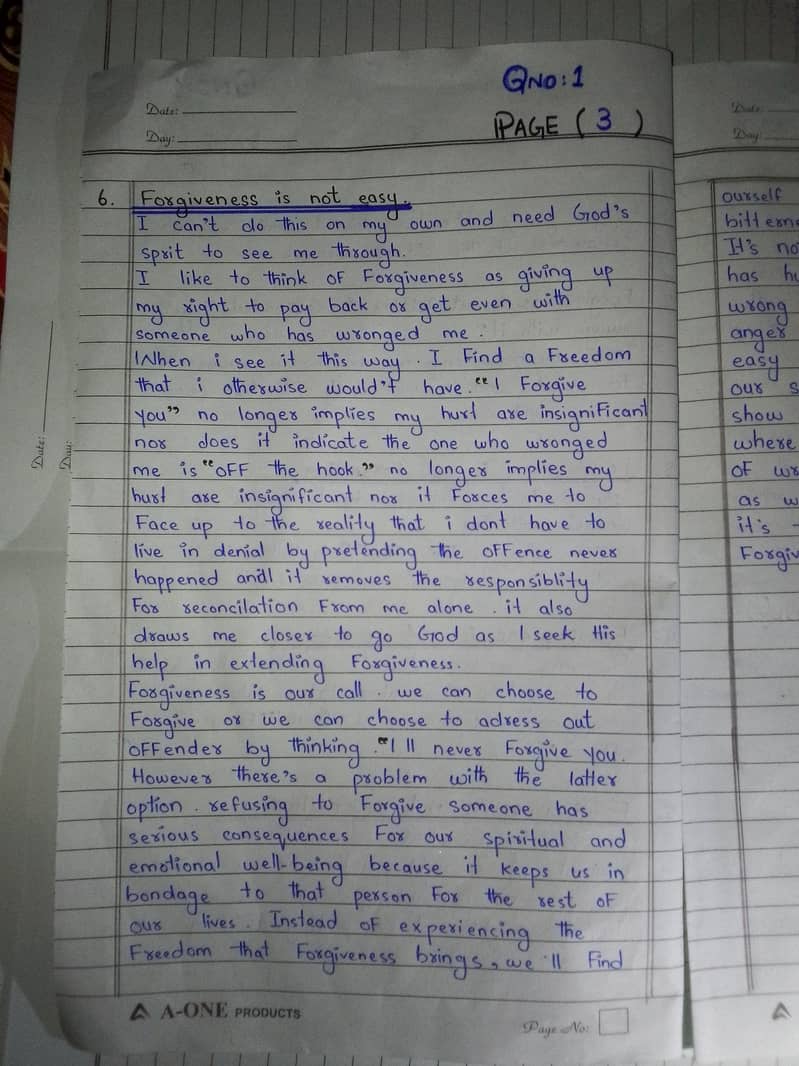 QNO:1
PAGE ( 3 )
Date:
Day:
6. Forgiveness is not easy.
I can't do this on my own and need God's
sprit to see me through.
I like to think of Forgiveness as giving up
my right to pay back or get even with
someone who has wronged me.
When i see it this way. I Find a Freedom
that i otherwise would't have. "I Forgive
you" no longer implies my hurt are insignificant
nor does it indicate the one who wronged
me is "OFF the hook." no longer implies my
hurt are insignificant nor it Forces me to
Face up to the reality that i dont have to
live in denial by pretending the OFFence never
happened and it removes the responsiblity
For reconcilation From me alone. it also
draws me closer to go God as I seek His
help in extending Forgiveness.
Forgiveness is our call. we can choose to
Forgive or we can choose to adress out
OFFender by thinking. "I ll never Forgive you.
However there's a problem with the latter
option. refusing to Forgive someone has
serious consequences For our spiritual and
emotional well-being because it keeps us in
bondage to that person For the rest of
our lives. Instead of experiencing the
Freedom that Forgiveness brings, we'll Find
A-ONE PRODUCTS
Page No:
Date:
Day:
Date:
Day:
ourself
It's no
has
wrong
anger
easy
our s
show
where
OF
as w
it's